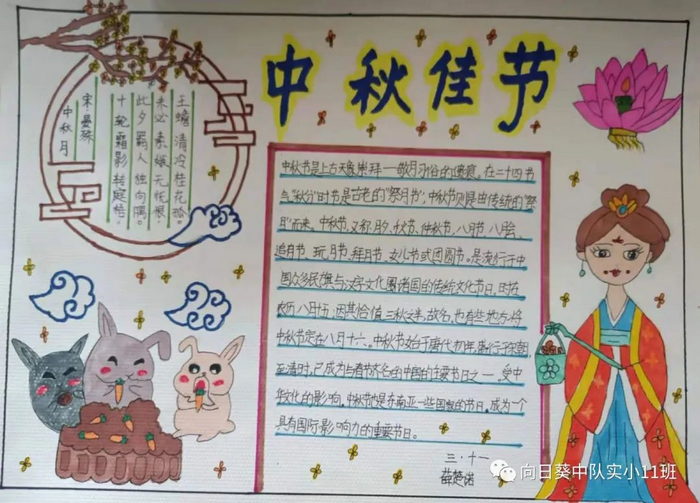 中秋佳节
中秋月
宋·晏殊
十轮霜影转庭梧,
此夕羁人独向隅。
未必素娥无怅恨,
玉蟾清冷桂花孤。
中秋节是上古天象崇拜——敬月习俗的遗痕。在二十四节
气"秋分"时节是古老的"祭月节",中秋节则是由传统的"祭
月"而来。中秋节,又称月夕、秋节、仲秋节、八月节、八月会、
追月节、玩月节、拜月节、女儿节或团圆节。是流行于中
国众多民族与汉字文化圈诸国的传统文化节日,时在
农历八月十五,因其恰值三秋之半,故名,也有些地方将
中秋节定在八月十六。中秋节始于唐代初年,盛行于宋朝,
至清时,已成为与春节齐名的中国的主要节日之一。受中
华文化的影响,中秋节也是东南亚一些国家的节日。成为一个
具有国际影响力的重要节日。
三·十一
薛楚诺
向日葵中队实小11班